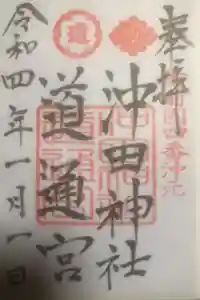 奉拝
沖田神社
道通宮
令和四年一月一日